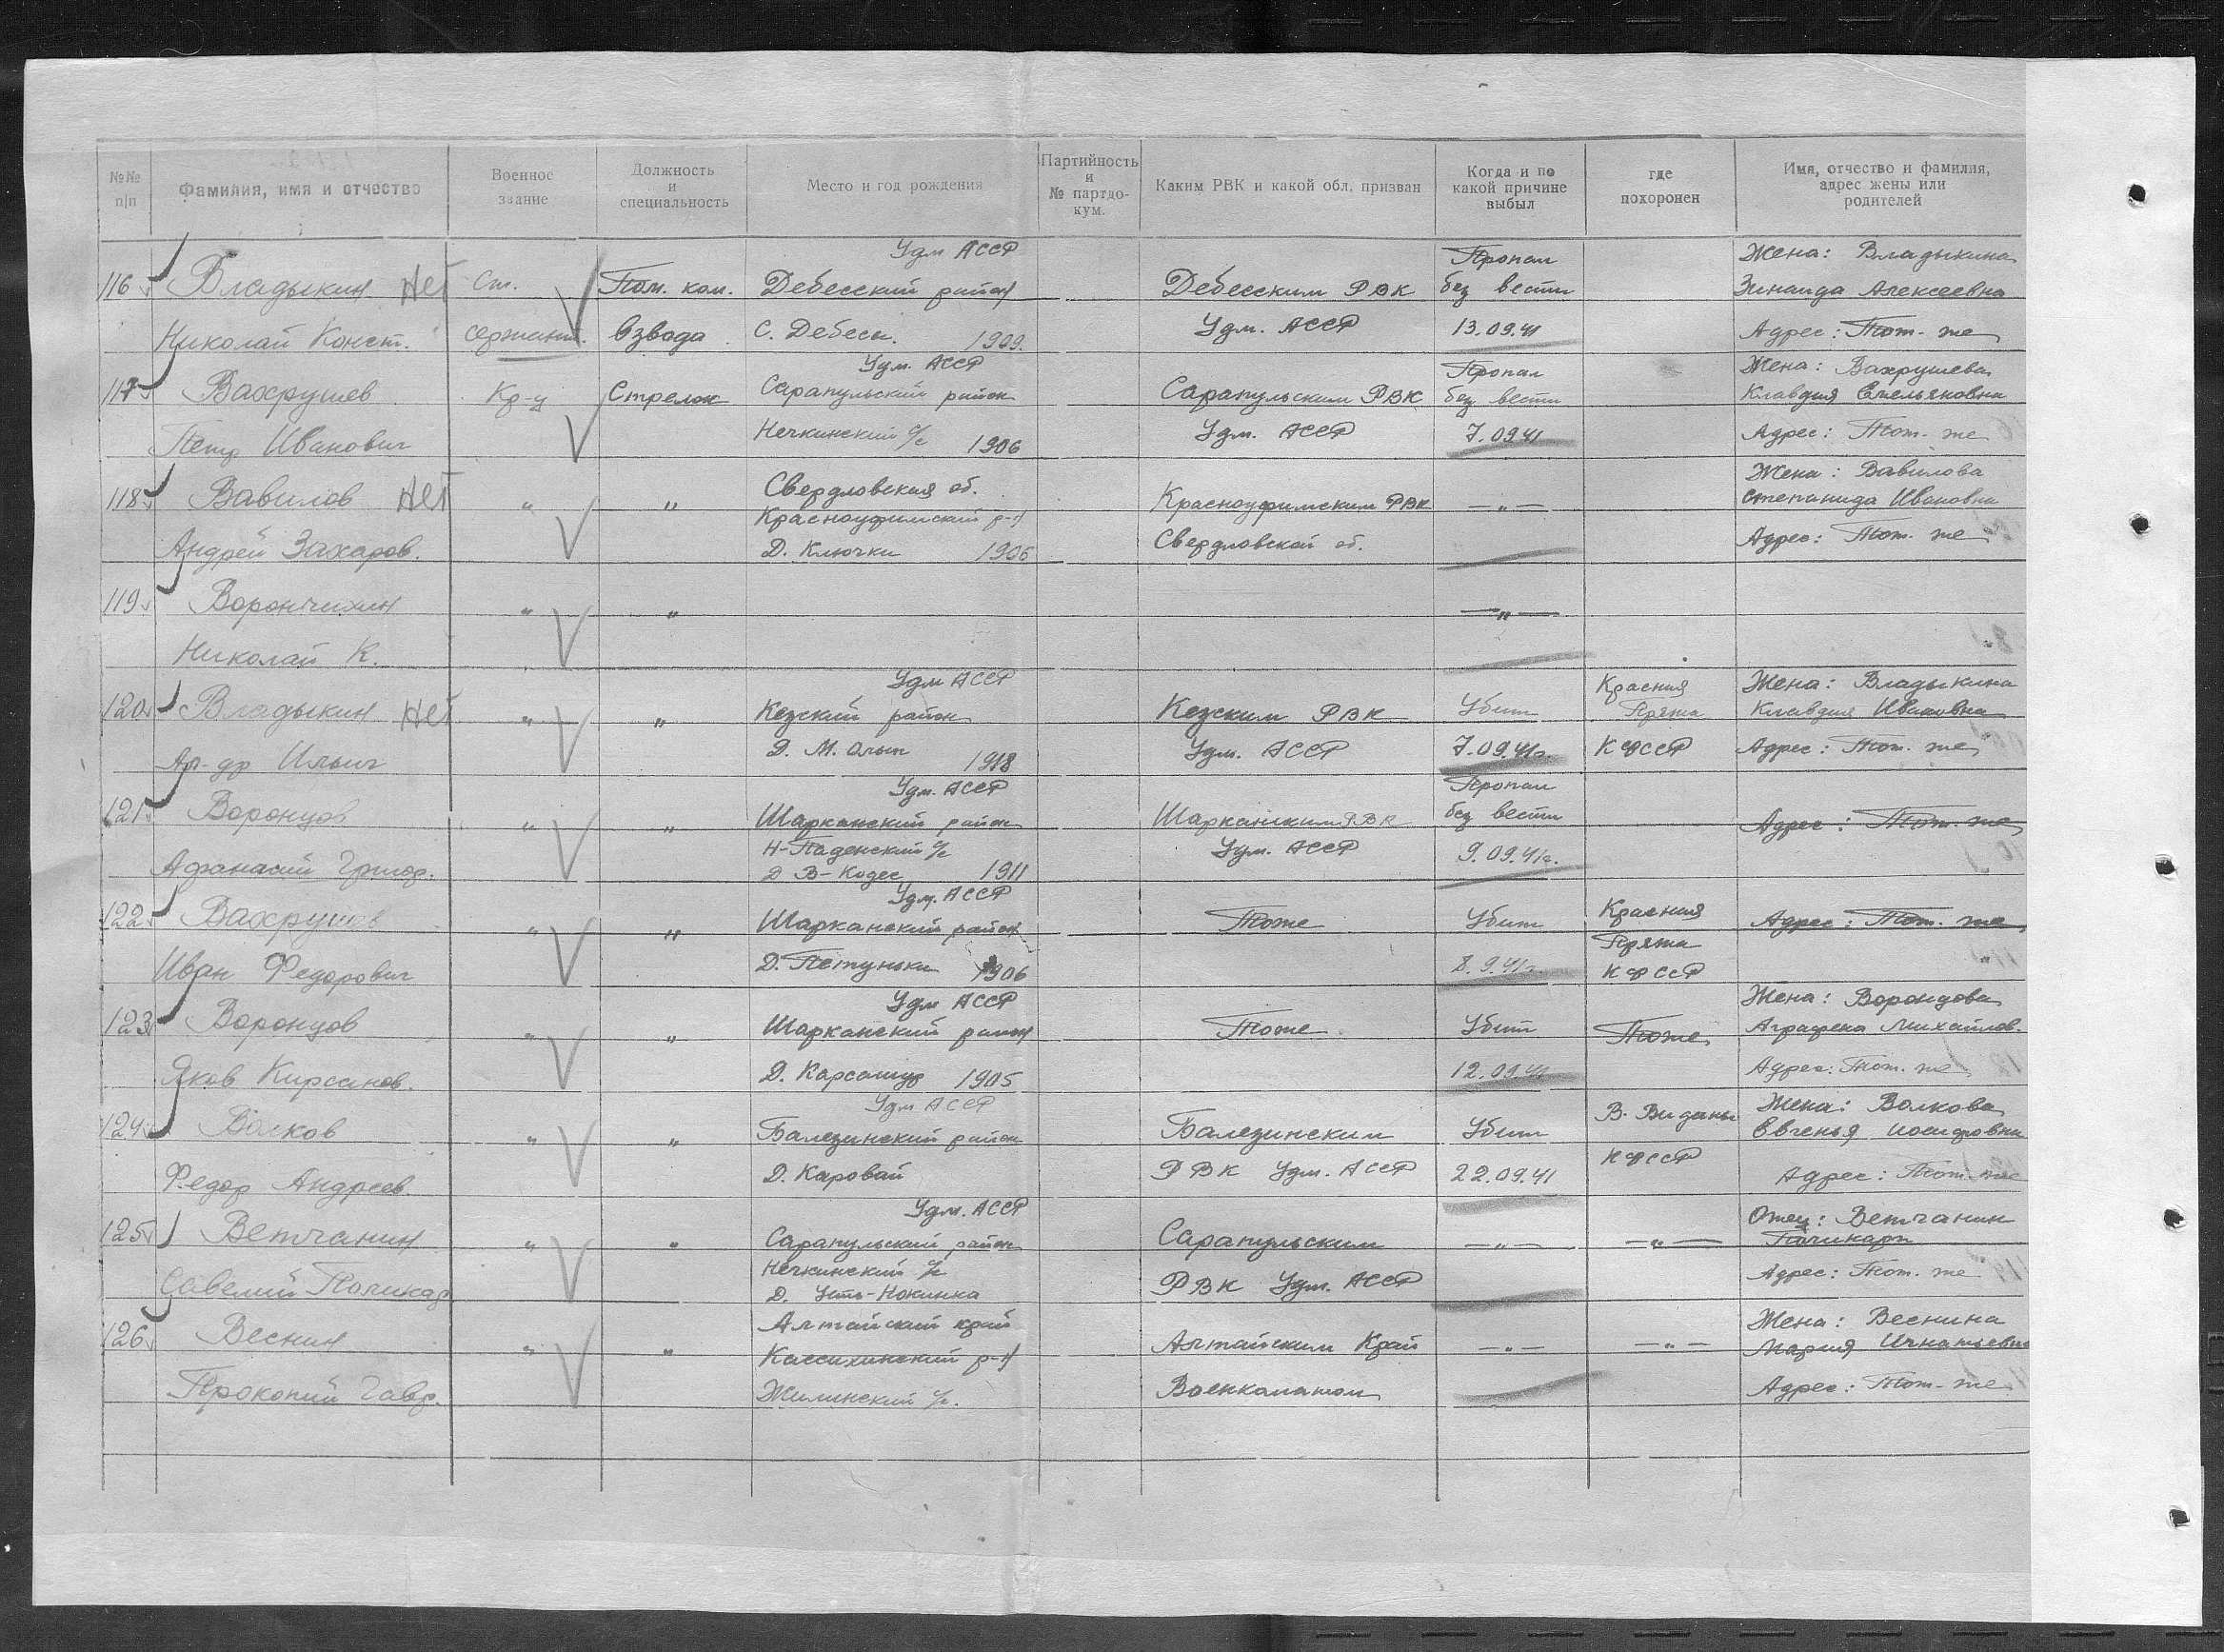 №№ п|п
Фамилия, имя и отчество
Военное звание
Должность и специальность
Место и год рождения
Партийность и № партдо-кум.
Каким РВК и какой обл. призван
Когда и по какой причине выбыл
где похоронен
Имя, отчество и фамилия, адрес жены или родителей
116 Владыкин Нет
Николай Конст.
Ст. сержант.
Пом. ком. взвода
Удм АССР
Дебесский район
С. Дебесы. 1909.
Дебесским РВК
Удм. АССР
Пропал
без вести
13.09.41
Жена: Владыкина
Зинаида Алексеевна
Адрес: Тот-же
117 Вахрушев
Петр Иванович
Кр-ц
Стрелок
Удм. АССР
Сарапульский район
Нечкинский с/с 1906
Сарапульским РВК
Удм. АССР
Пропал
без вести
7.09.41
Жена: Вахрушева
Клавдия Емельяновна
Адрес: Тот-же
118 Вавилов Нет
Андрей Захаров.
"
"
Свердловская об.
Красноуфимский р-н
Д. Ключки 1906
Красноуфимским РВК
Свердловской об.
—"—
Жена: Вавилова
Степанида Ивановна
Адрес: Тот-же
119 Ворончихин
Николай К.
"
"
—"—
120 Владыкин Нет
Ал-др Ильич
"
"
Удм АССР
Кезский район
Д. М. Олып 1918
Кезским РВК
Удм. АССР
Убит
7.09.41г.
Красная
Пряжа
КФССР
Жена: Владыкина
Клавдия Ивановна
Адрес: Тот-же
121 Воронцов
Афанасий Григор.
"
"
Удм. АССР
Шарканский район
Н-Паденский с/с
Д В-Кодес 1911
Шарканским РВК
Удм. АССР
Пропал
без вести
9.09.41г.
Адрес: Тот-же
122 Вахрушев
Иван Федорович
"
"
Удм. АССР
Шарканский район
Д. Петуньки 1906
Тоже
Убит
8.9.41г.
Красная
Пряжа
КФССР
Адрес: Тот-же
123 Воронцов
Яков Кирсанов.
"
"
Удм АССР
Шарканский район
Д. Карсашур 1905
Тоже
Убит
12.09.41
Тоже
Жена: Воронцова
Аграфена Михайлов.
Адрес: Тот-же
124 Волков
Федор Андреев.
"
"
Удм АССР
Балезинский район
Д. Каровай
Балезинским
РВК Удм. АССР
Убит
22.09.41
В. Виданы
КФССР
Жена: Волкова
Евгенья Иосифовна
Адрес: Тот-же
125 Ветчанин
Савелий Поликар
"
"
Удм. АССР
Сарапульский район
Нечкинский с/с
Д. Усть-Нокинка
Сарапульским
РВК Удм. АССР
—"—
—"—
Отец: Ветчанин
Поликарп
Адрес: Тот-же
126 Веснин
Прокопий Гавр.
"
"
Алтайский край
Кассихинский р-н
Жилинский с/с.
Алтайским Край
Военкоматом
—"—
—"—
Жена: Веснина
Мария Игнатьевна
Адрес: Тот-же